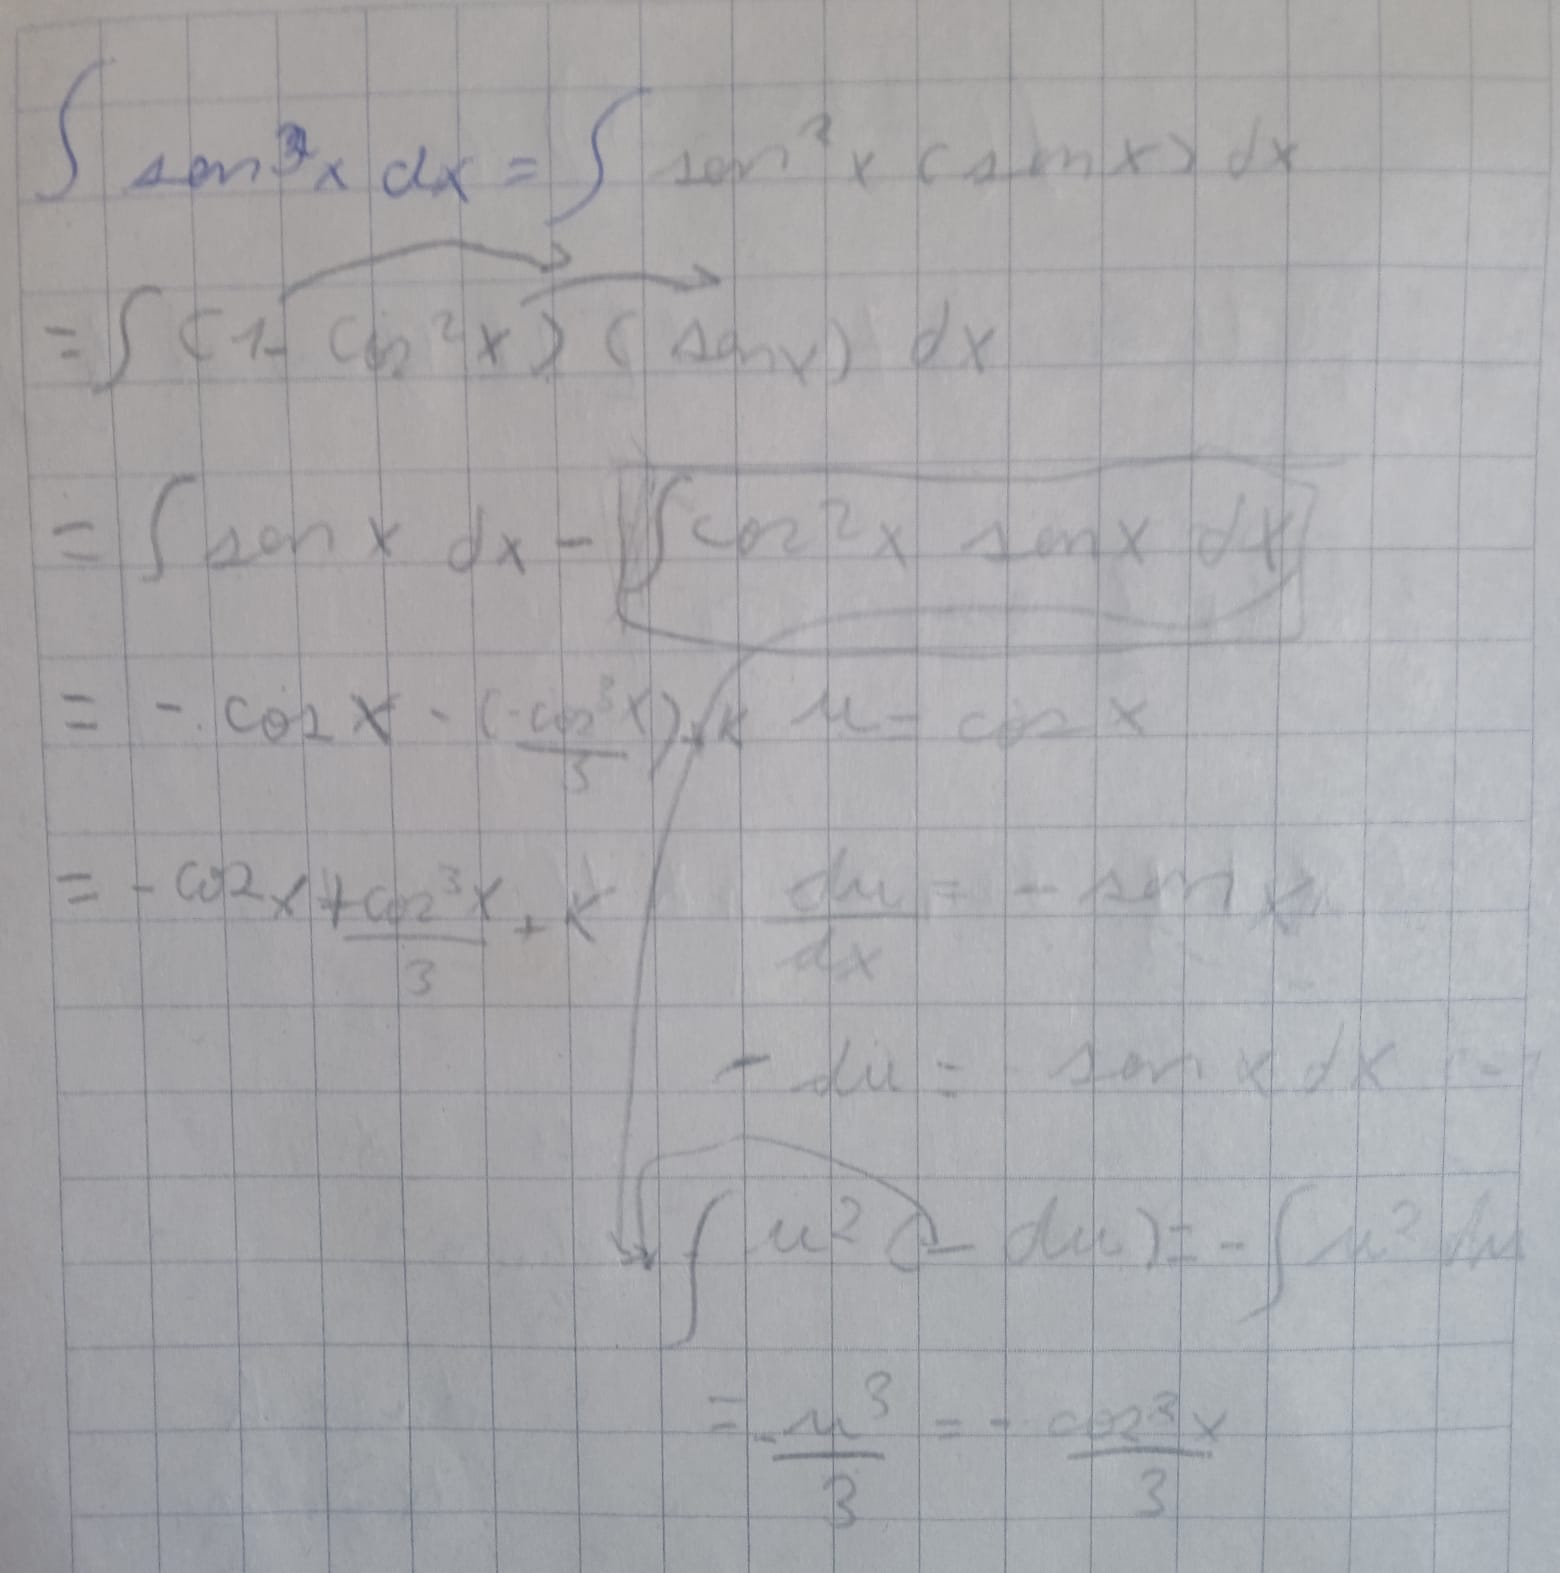 ∫ sen³x dx = ∫ sen²x (senx) dx
= ∫ (1 - cos²x) (senx) dx
= ∫ sen x dx - ∫ cos²x senx dx
= - cos x - (-cos³x/3) + K
= - cos x + cos³x/3 + K
u = cos x
du/dx = - sen x
- du = sen x dx
∫ u² (- du) = - ∫ u² du
= - u³/3 = - cos³x/3